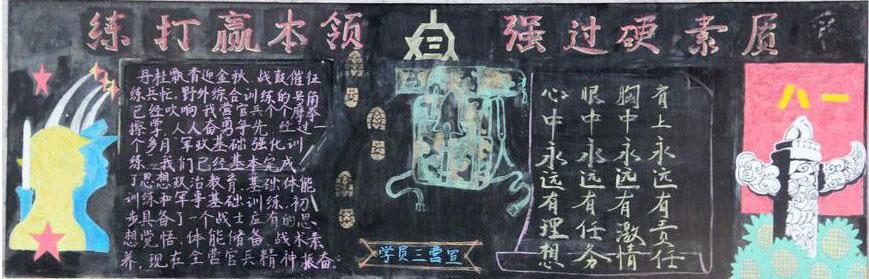 练打赢本领 强过硬素质
丹桂飘香迎金秋,战鼓催征
练兵忙.野外综合训练的号角
已经吹响,我营官兵个个摩拳
擦掌,人人奋勇争先.经过一
个多月"军政基础"强化训
练,我们已经基本完成
了思想政治教育,基础体能
训练和军事基础训练,初
步具备了一个战士应有的思
想觉悟、体能储备、战术素
养,现在全营官兵精神振奋.
学员三营宣
肩上永远有责任
胸中永远有激情
眼中永远有任务
心中永远有理想
八一